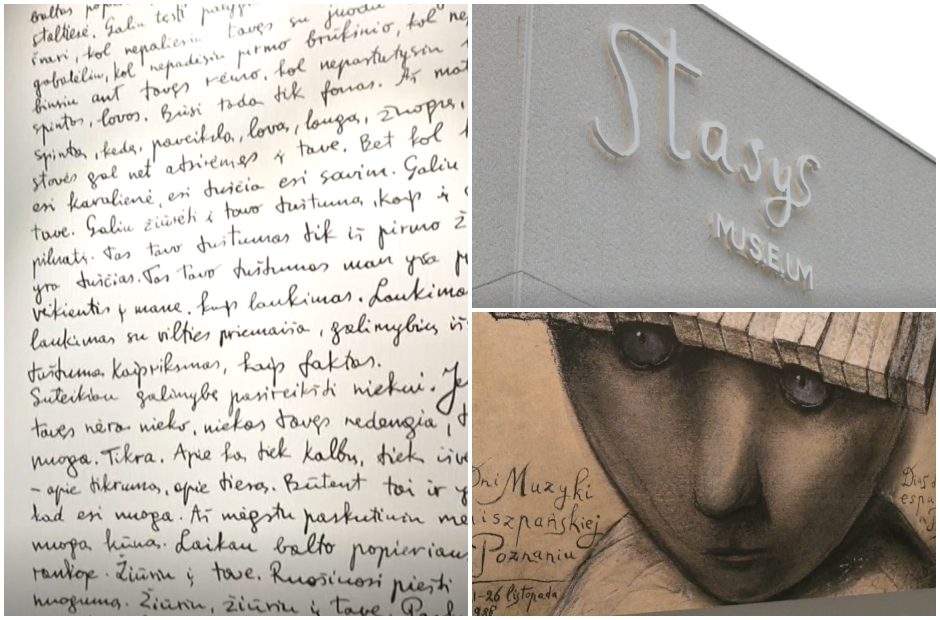 baltas
staltiesė. Galiu tęsti
švari, kol nepaliesiu tavęs su juodu
gabalėliu, kol nepadėsiu pirmo brūkšnio, kol
ant tavęs rėmo, kol nepastatysiu
spintos, lovos. Būsi tada tik fonas. Aš
spinta, kėdė, paveikslas, lova, langas, žmogus,
stovės gal net atsirėmęs į tave. Bet kol
esi karalienė, esi tuščia esi savim. Galiu
tave. Galiu žiūrėti į tavo tuštumą, kaip į
pilnatį. Tas tavo tuštumas tik iš pirmo
yra tuščias. Tas tavo tuštumas man yra
veikiantis į mane, kaip laukimas. Laukimas
laukimas su vilties priemaiša, galimybių
tuštuma kaip riksmas, kaip faktas.
Suteikiau galimybę pasireikšti niekui. Je
tavęs nėra nieko, niekas tavęs nedengia,
nuoga. Tikra. Apie ką tiek kalbu, tiek
– apie tikrumą, apie tiesą. Būtent tai ir y
kad esi nuoga. Aš mėgstu paskutiniu
nuogą kūną. Laikau balto popieriaus
rankoje. Žiūriu į tave. Ruošiuosi piešti
nuogumą. Žiūriu, žiūriu į tave.
Stasys
MUSEUM
Dni Muzyki
iszpańskiej
Poznaniu
1-26 listopada
Dias d
espa